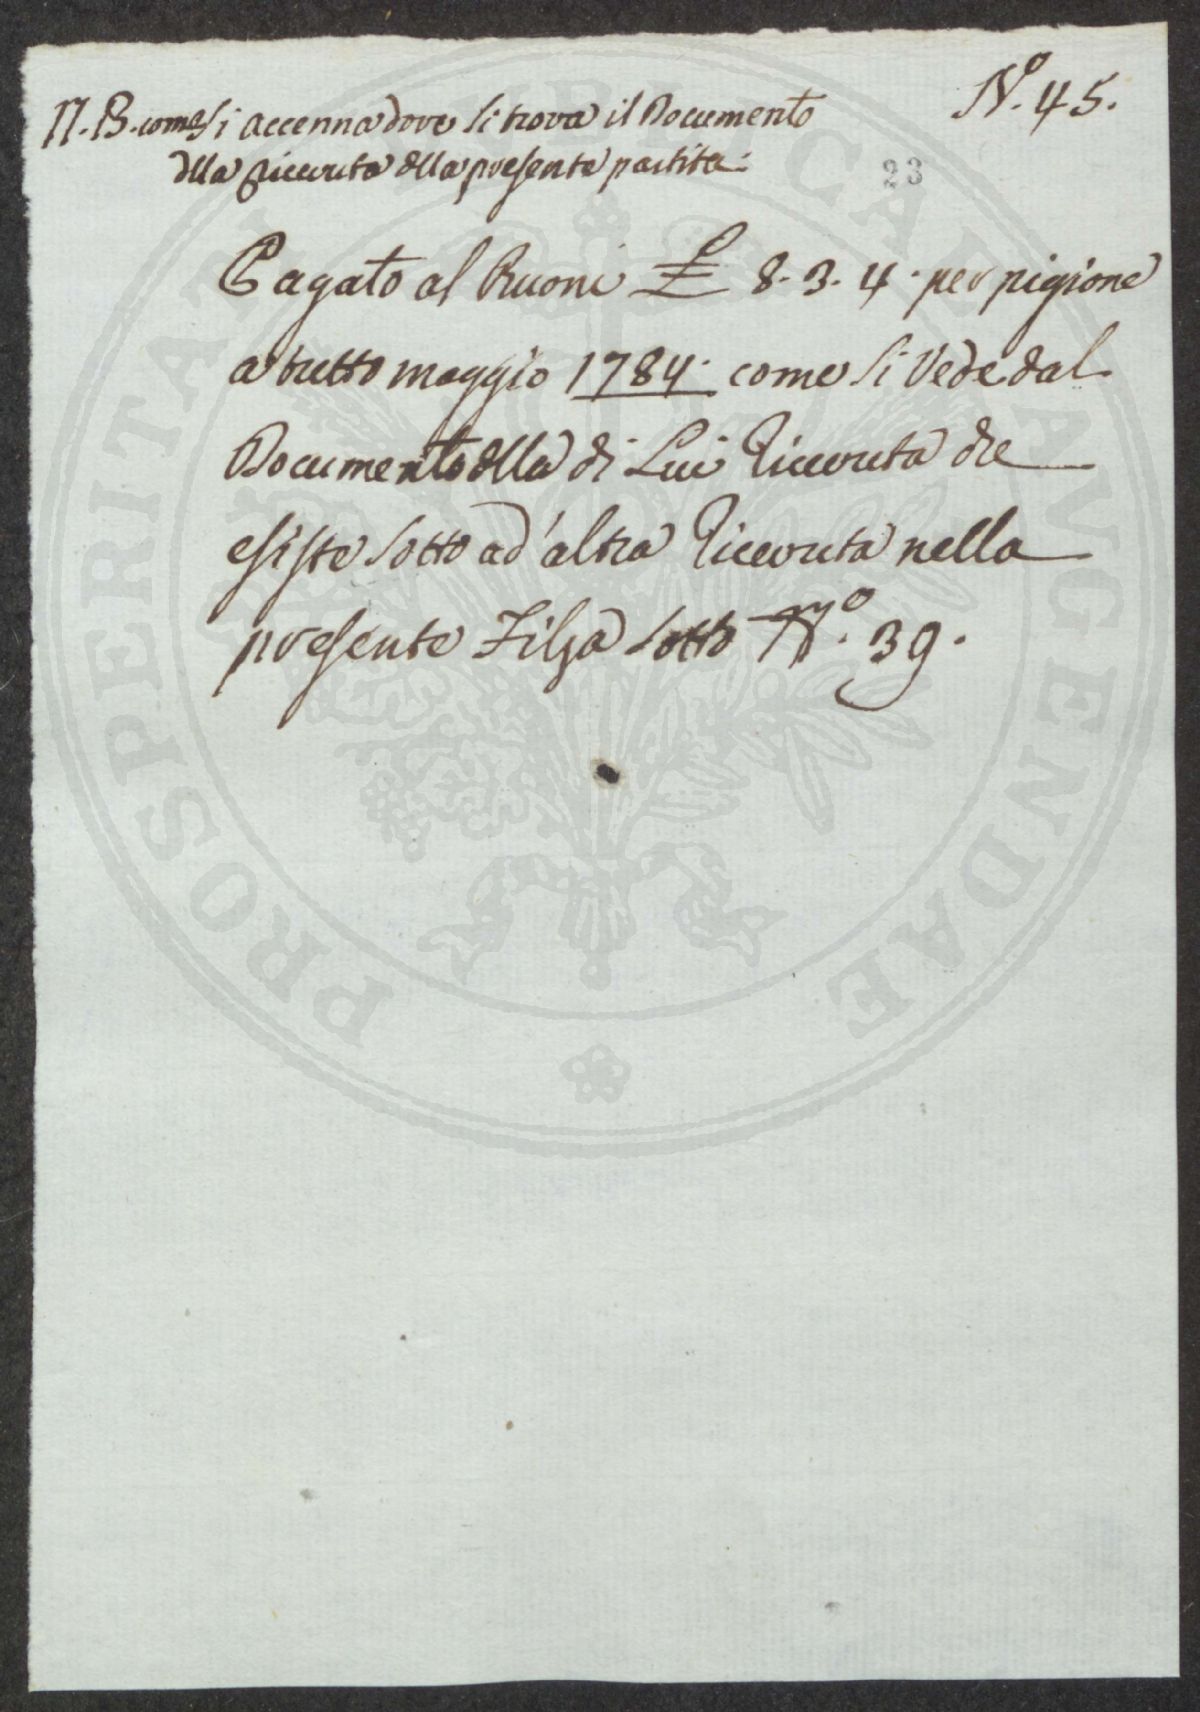 Nº. 45.
N. B. come si accenna dove si trova il Documento
dlla ricevuta dlla presente partita:
23
Pagato al Buoni £ 8. 3. 4. per pigione
a tutto maggio 1784. come si Vede dal
Documento dlla di Lui Ricevuta che
esiste sotto ad' altra Ricevuta nella
presente Filza sotto Nº. 39.
PROSPERITATI PUBLICAE AUGENDAE